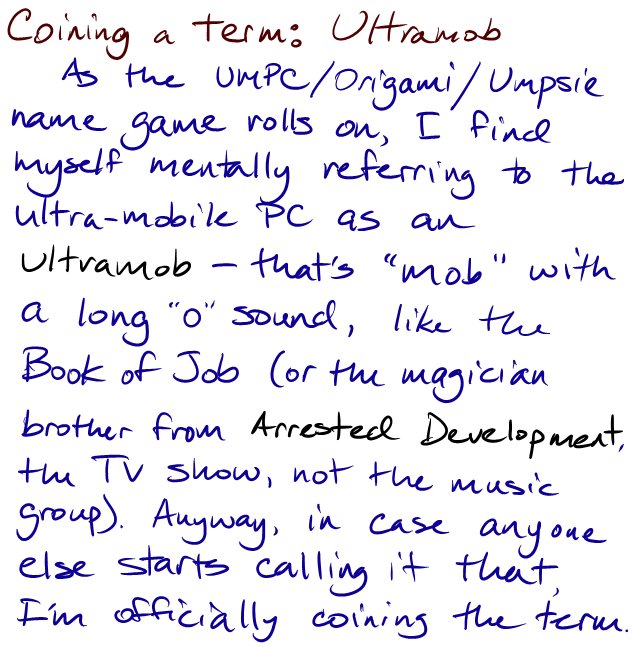 Coining a term: Ultramob
As the UMPC/Origami/Umpsie
name game rolls on, I find
myself mentally referring to the
ultra-mobile PC as an
Ultramob – that's "mob" with
a long "o" sound, like the
Book of Job (or the magician
brother from Arrested Development,
the TV show, not the music
group). Anyway, in case anyone
else starts calling it that,
I'm officially coining the term.